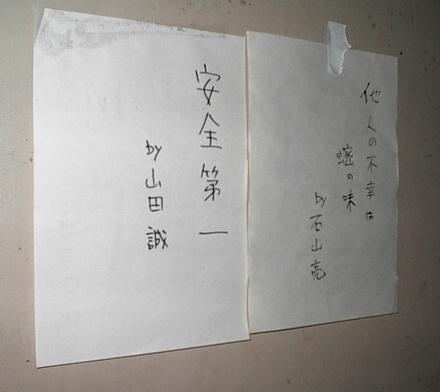 他人の不幸は
蜜の味
by 石山亮
安全第一
by 山田誠